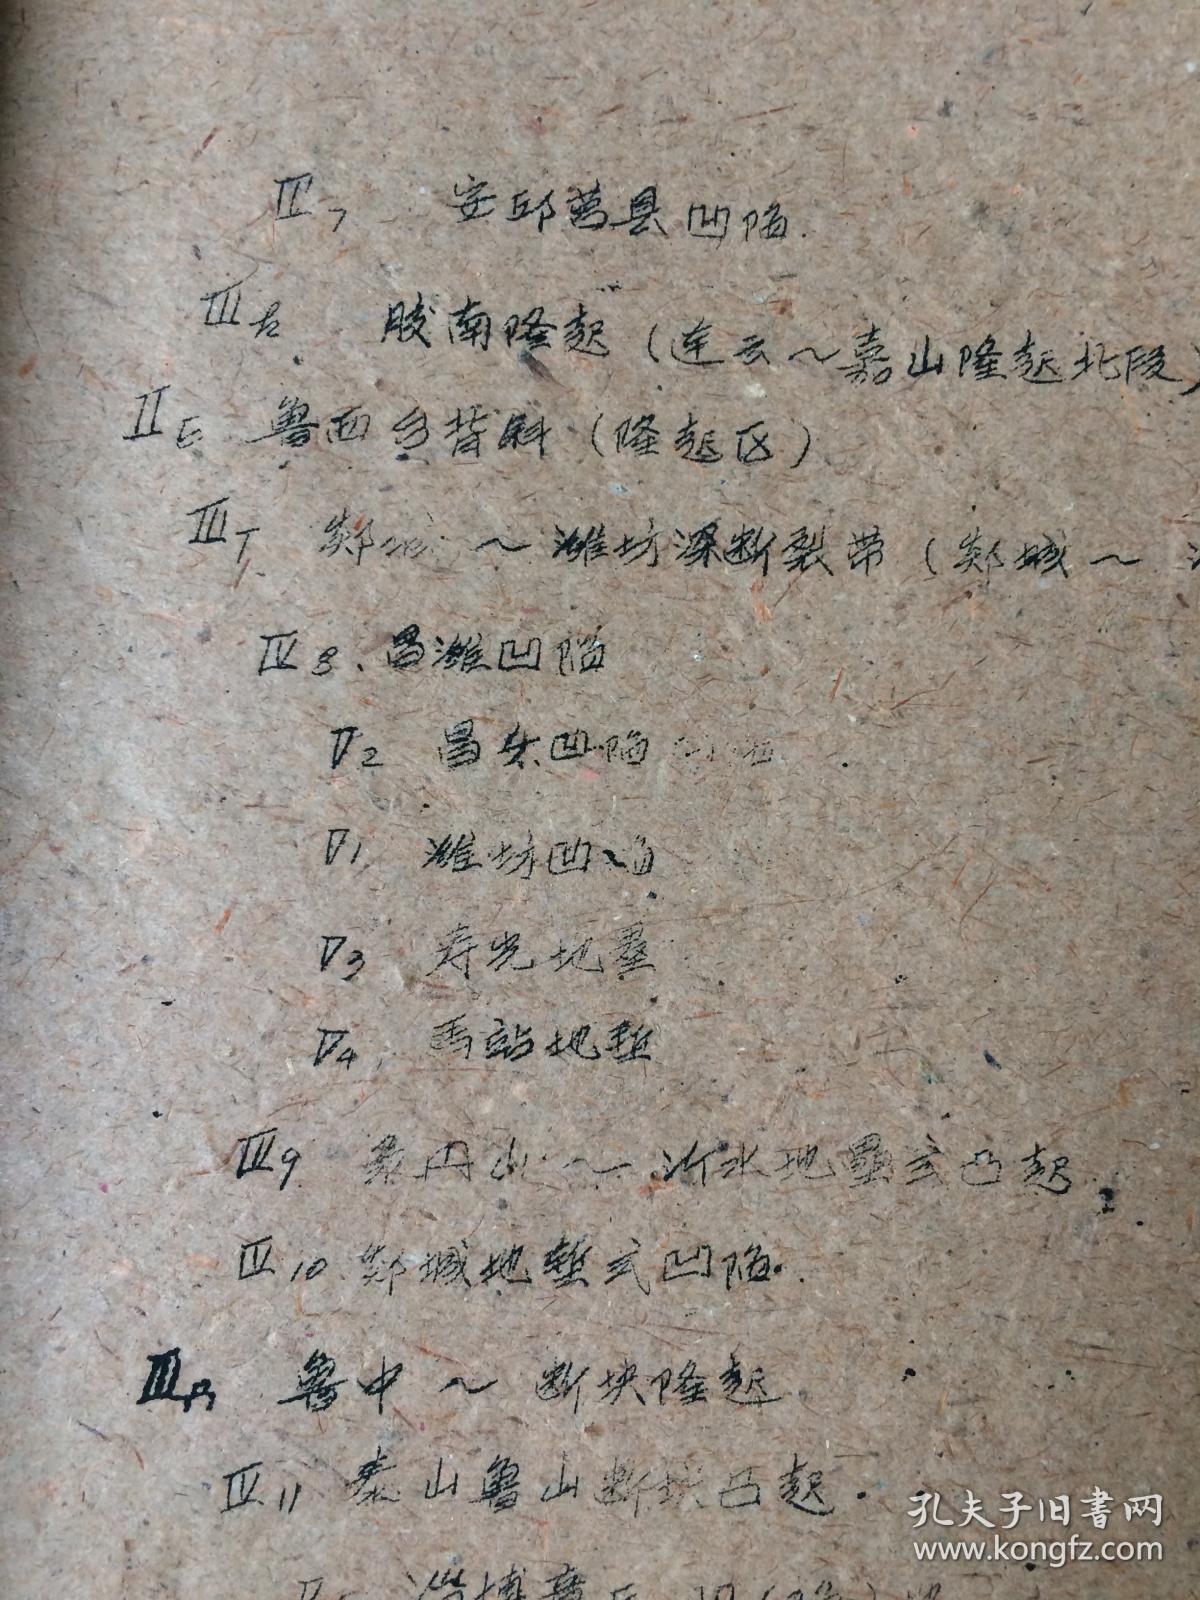 Ⅳ7 安邱莒县凹陷.
Ⅲ 胶南隆起(连云~嘉山隆起北段)
Ⅱ 鲁西台背斜(隆起区)
Ⅲ 郯城~潍坊深断裂带(郯城~
Ⅳ8、昌潍凹陷
Ⅴ2 昌东凹陷
Ⅴ1 潍坊凹陷
Ⅴ3 寿光地垒
Ⅴ4 马站地堑
Ⅳ9 丹山~沂水地垒式凸起
Ⅳ10 郯城地堑式凹陷.
Ⅲ 鲁中~断块隆起
Ⅳ11 泰山鲁山断块凸起.
淄博
孔夫子旧书网
www.kongfz.com